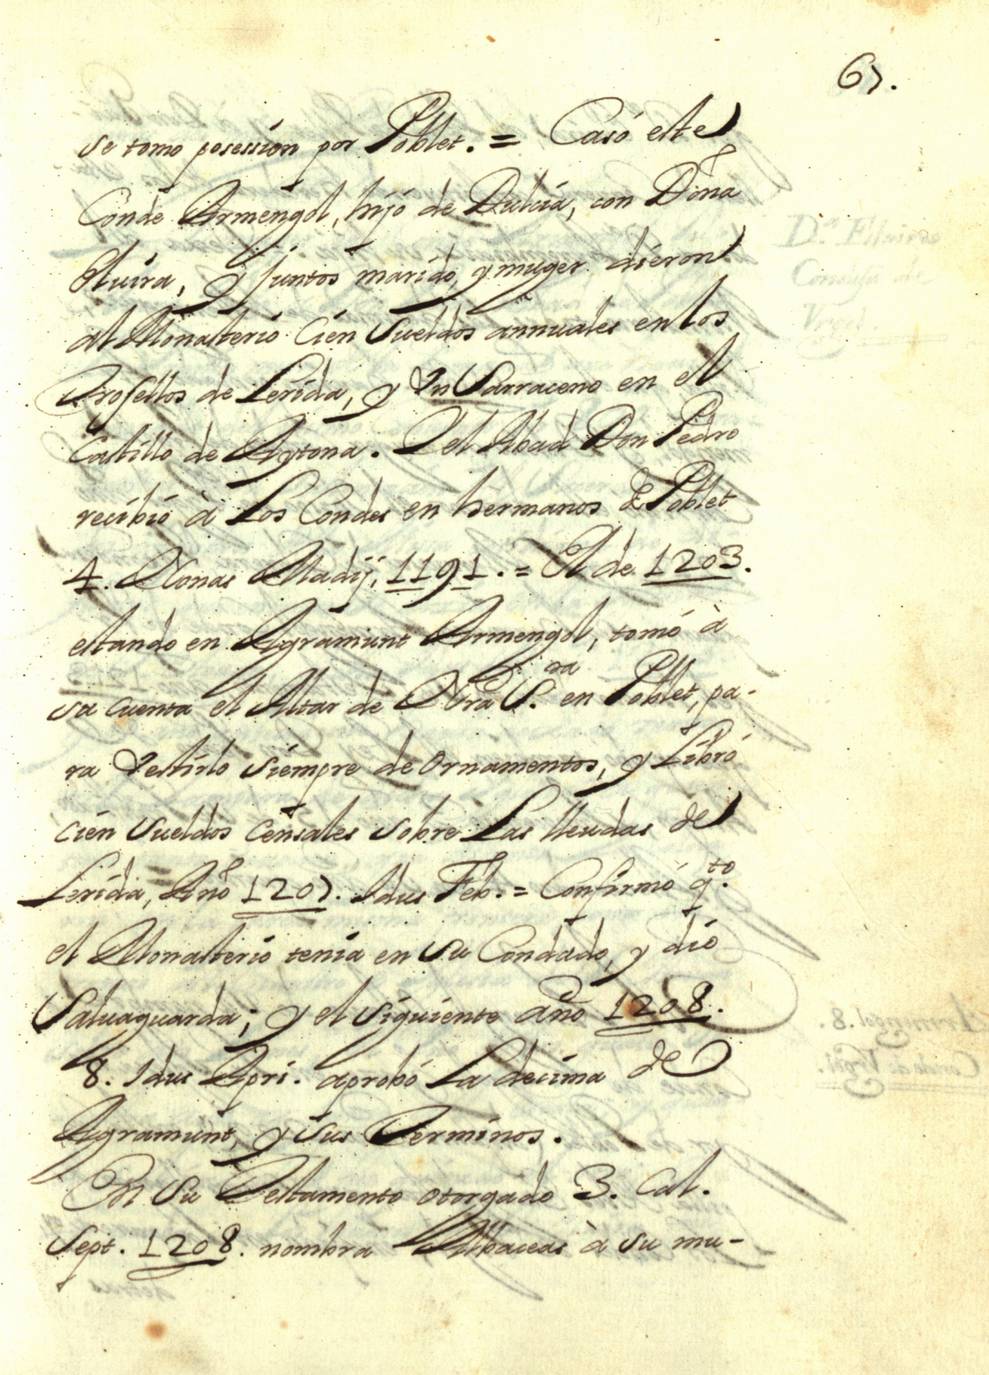 67.
se tomo posession por Poblet. = Casó este
Conde Armengol, hijo de Dulcia, con Doña
Elvira, y juntos marido, y muger dieron
al Monasterio Cien Sueldos annuales en los
de Lerida, y Vn Sarraceno en el
Castillo de Aytona. I el Abad Don Pedro
recibió à Los Condes en hermanos de Poblet
4. Nonas Madij, 1191. = El de 1203.
estando en Agramunt Armengol, tomó à
su cuenta el Altar de Ntra S.ra en Poblet, pa-
ra Vestirlo siempre de Ornamentos, y Libró
cien Sueldos Censales sobre Las lleudas de
Lerida, Año 1207. Idus Feb. = Confirmó q.to
el Monasterio tenia en Su Condado, y dió
Salvaguarda; y el siguiente año 1208.
8. Idus Apri. aprobó La decima de
Agramunt, y sus Terminos.
En Su Testamento otorgado 3. Cal.
Sept. 1208. nombra Albaceas à su mu-